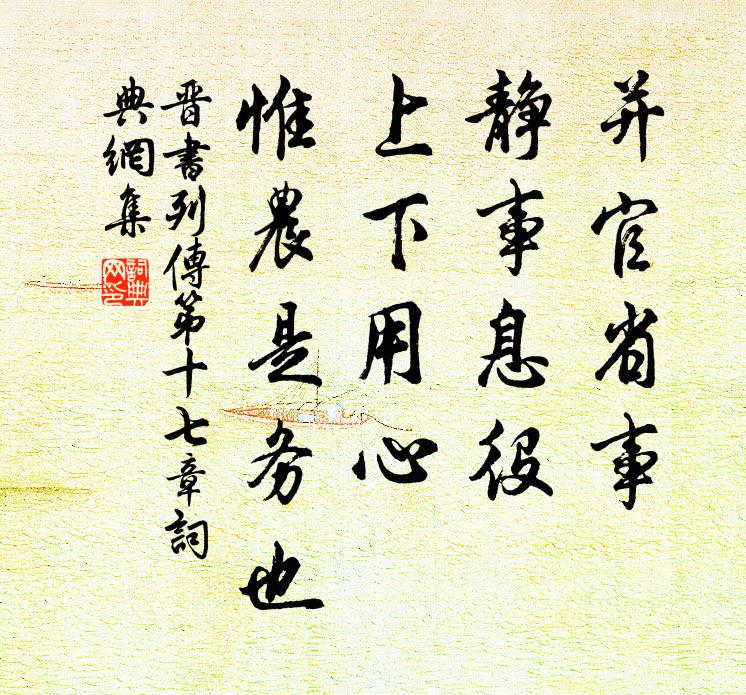 并官省事
静事息役
上下用心
惟農是务也
晋書列傳第十七章詞
典網集
詞典
网印